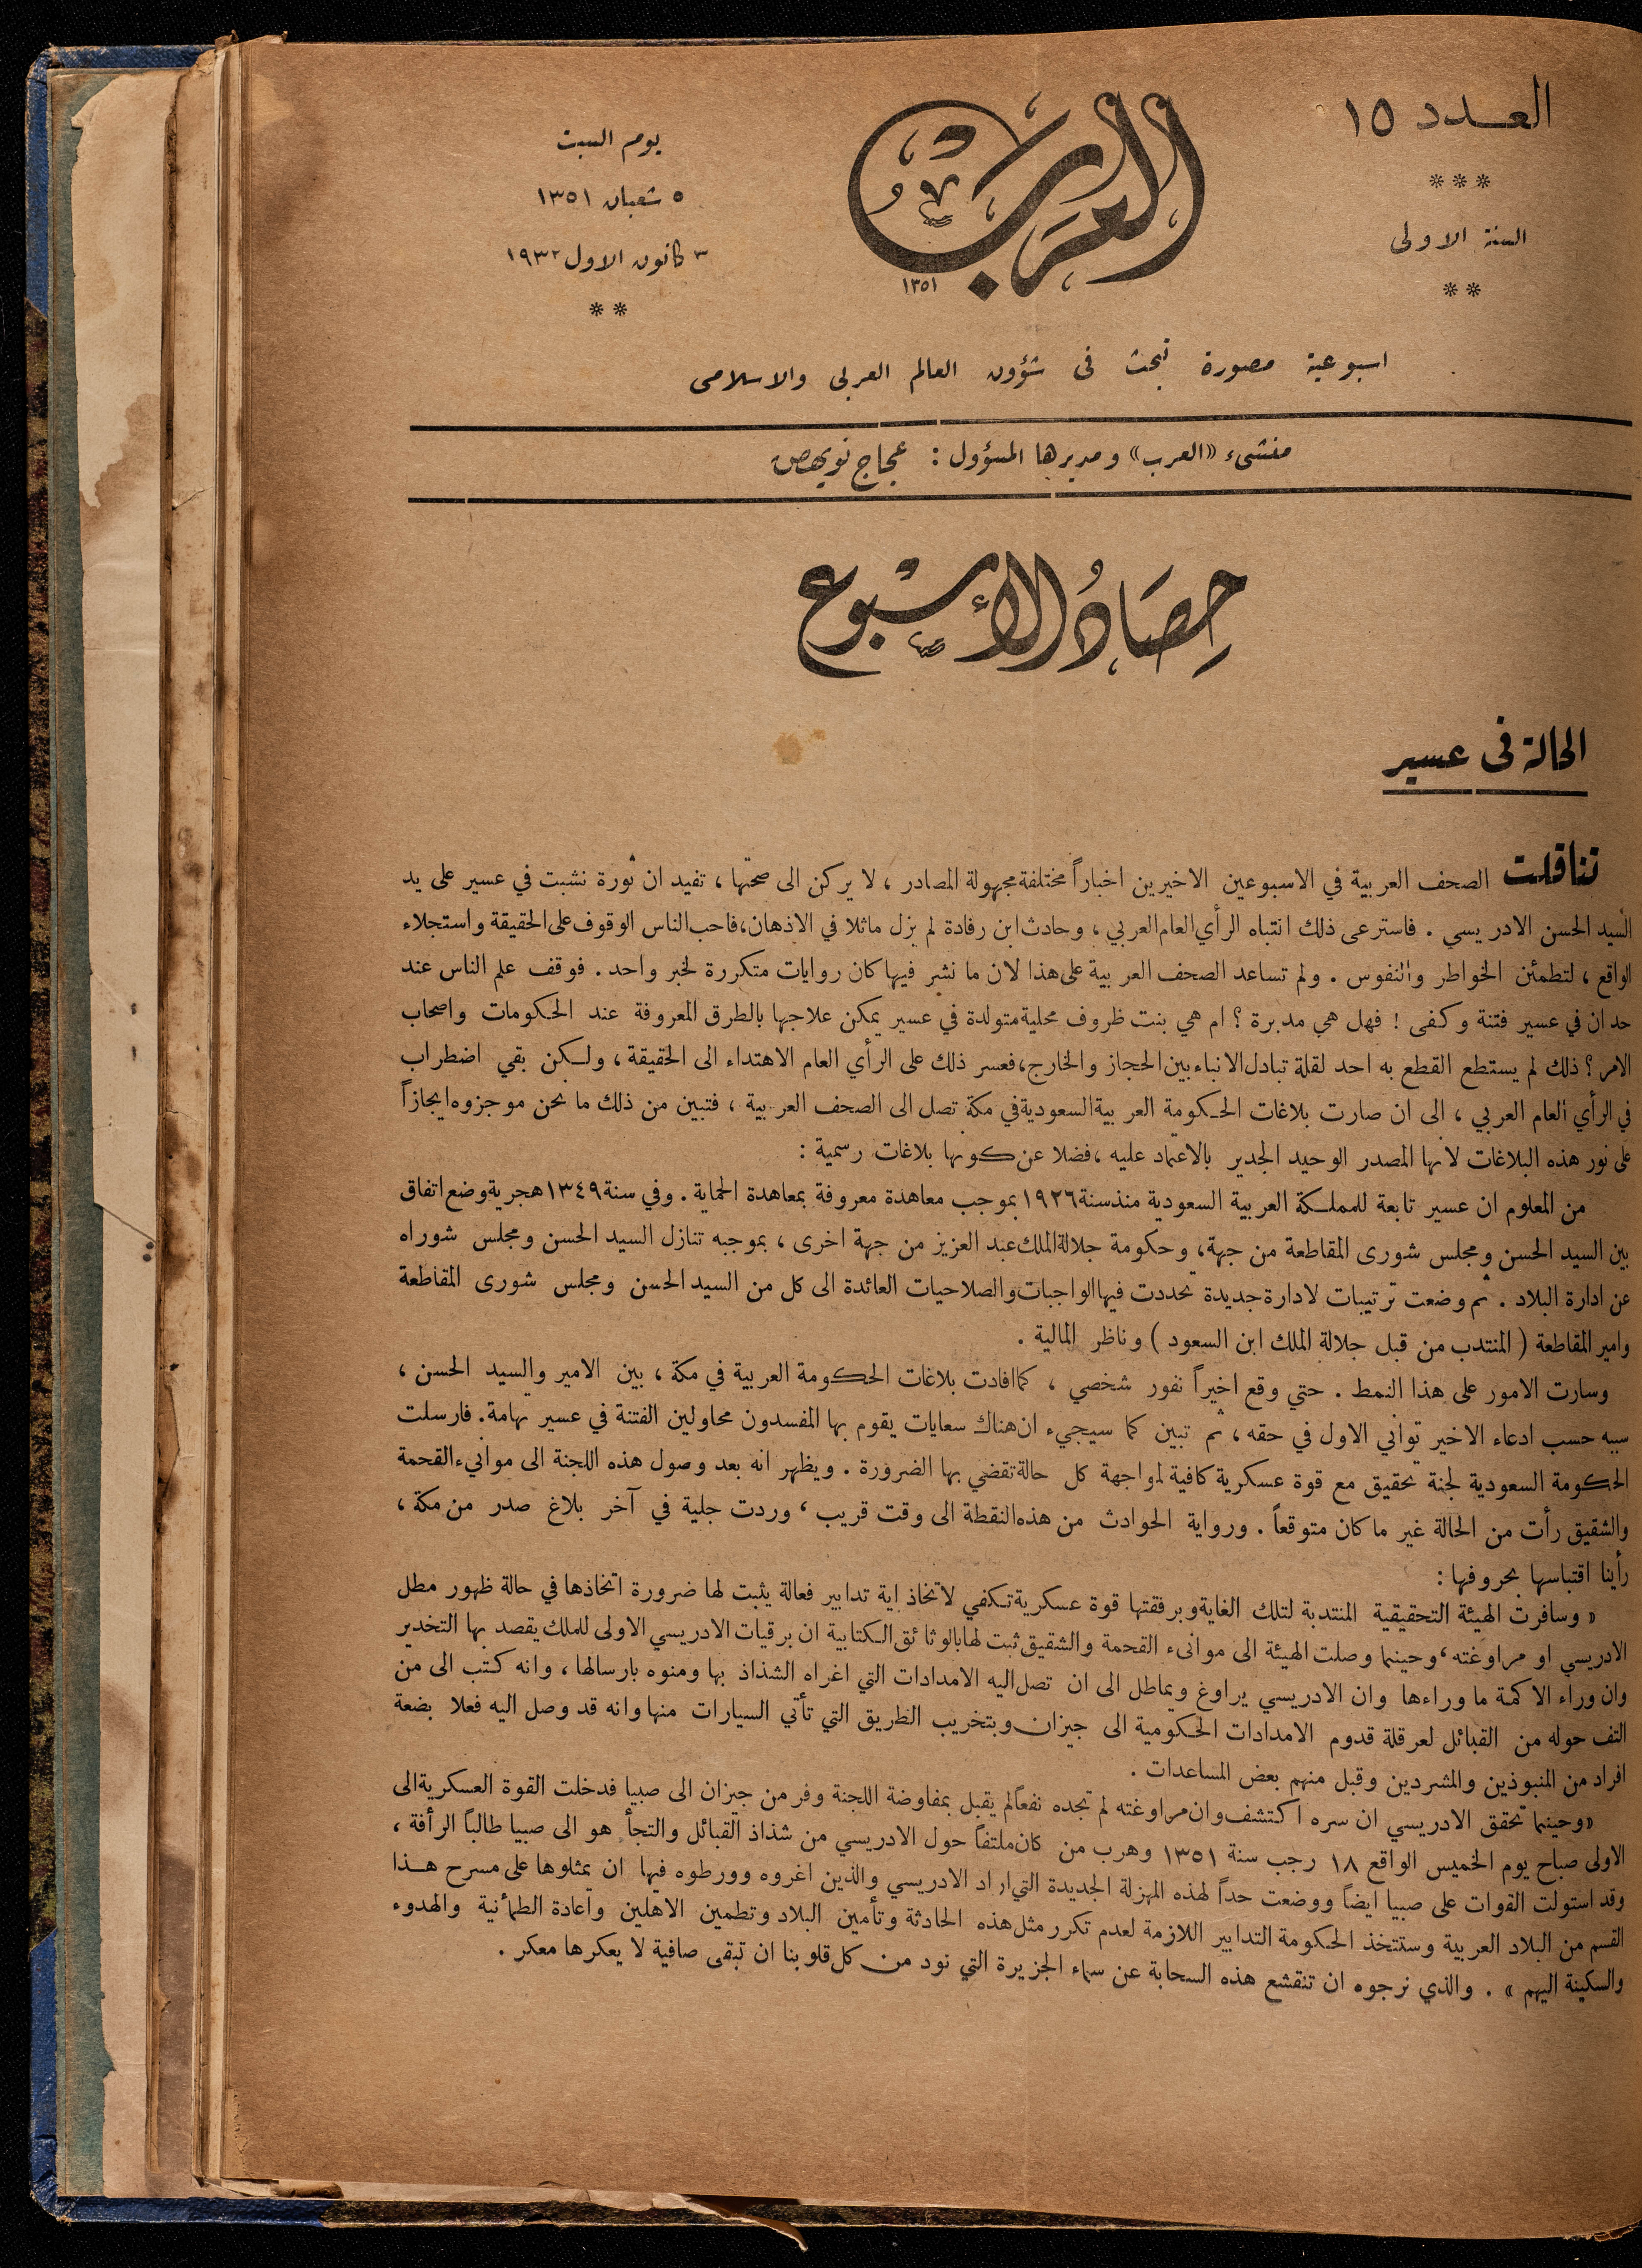 العـدد ١٥
السنة الاولى
العرب
١٣٥١
يوم السبت
٥ شعبان ١٣٥١
٣ كانون الاول ١٩٣٢
اسبوعية مصورة تبحث في شؤون العالم العربي والاسلامي
منشىء «العرب» ومديرها المسؤول : عجاج نويهض
حِصَادُ الأسْبوع
الحالة في عسير
تناقلت الصحف العربية في الاسبوعين الاخيرين اخباراً مختلفة مجهولة المصادر ، لا يركن الى صحتها ، تفيد ان ثورة نشبت في عسير على يد
السيد الحسن الادريسي . فاسترعى ذلك انتباه الرأي العام العربي ، وحادث ابن رفادة لم يزل ماثلا في الاذهان، فاحب الناس الوقوف على الحقيقة واستجلاء
الواقع ، لتطمئن الخواطر والنفوس . ولم تساعد الصحف العربية على هذا لان ما نشر فيها كان روايات متكررة لخبر واحد . فوقف علم الناس عند
حد ان في عسير فتنة وكفى ! فهل هي مدبرة ؟ ام هي بنت ظروف محلية متولدة في عسير يمكن علاجها بالطرق المعروفة عند الحكومات واصحاب
الامر ؟ ذلك لم يستطع القطع به احد لقلة تبادل الانباء بين الحجاز والخارج، فعسر ذلك على الرأي العام الاهتداء الى الحقيقة ، ولكن بقي اضطراب
في الرأي العام العربي ، الى ان صارت بلاغات الحكومة العربية السعودية في مكة تصل الى الصحف العربية ، فتبين من ذلك ما نحن موجزوه ايجازاً
على نور هذه البلاغات لانها المصدر الوحيد الجدير بالاعتماد عليه ، فضلا عن كونها بلاغات رسمية :
من المعلوم ان عسير تابعة للمملكة العربية السعودية منذ سنة ١٩٢٦ بموجب معاهدة معروفة بمعاهدة الحماية . وفي سنة ١٣٤٩ هجرية وضع اتفاق
بين السيد الحسن ومجلس شورى المقاطعة من جهة، وحكومة جلالة الملك عبد العزيز من جهة اخرى ، بموجبه تنازل السيد الحسن ومجلس شوراه
عن ادارة البلاد . ثم وضعت ترتيبات لادارة جديدة تحددت فيها الواجبات والصلاحيات العائدة الى كل من السيد الحسن ومجلس شورى المقاطعة
وامير المقاطعة ( المنتدب من قبل جلالة الملك ابن السعود ) وناظر المالية .
وسارت الامور على هذا النمط . حتي وقع اخيراً نفور شخصي ، كما افادت بلاغات الحكومة العربية في مكة ، بين الامير والسيد الحسن ،
سببه حسب ادعاء الاخير تواني الاول في حقه ، ثم تبين كما سيجيء ان هناك سعايات يقوم بها المفسدون محاولين الفتنة في عسير تهامة . فارسلت
الحكومة السعودية لجنة تحقيق مع قوة عسكرية كافية لمواجهة كل حالة تقضي بها الضرورة . ويظهر انه بعد وصول هذه اللجنة الى موانيء القحمة
والشقيق رأت من الحالة غير ما كان متوقعاً . ورواية الحوادث من هذه النقطة الى وقت قريب ، وردت جلية في آخر بلاغ صدر من مكة ،
رأينا اقتباسها بحروفها :
« وسافرت الهيئة التحقيقية المنتدبة لتلك الغاية وبرفقتها قوة عسكرية تكفي لاتخاذ اية تدابير فعالة يثبت لها ضرورة اتخاذها في حالة ظهور مطل
الادريسي او مراوغته ، وحينما وصلت الهيئة الى موانىء القحمة والشقيق ثبت لها بالوثائق الكتابية ان برقيات الادريسي الاولى للملك يقصد بها التخدير
وان وراء الاكمة ما وراءها وان الادريسي يراوغ ويماطل الى ان تصل اليه الامدادات التي اغراه الشذاذ بها ومنوه بارسالها ، وانه كتب الى من
التف حوله من القبائل لعرقلة قدوم الامدادات الحكومية الى جيزان وبتخريب الطريق التي تأتي السيارات منها وانه قد وصل اليه فعلا بضعة
افراد من المنبوذين والمشردين وقبل منهم بعض المساعدات .
«وحينما تحقق الادريسي ان سره اكتشف وان مراوغته لم تجده نفعاً لم يقبل بمفاوضة اللجنة وفر من جيزان الى صبيا فدخلت القوة العسكرية الى
الاولى صباح يوم الخميس الواقع ١٨ رجب سنة ١٣٥١ وهرب من كان ملتفاً حول الادريسي من شذاذ القبائل والتجأ هو الى صبيا طالباً الرأفة ،
وقد استولت القوات على صبيا ايضاً ووضعت حداً لهذه المهزلة الجديدة التي اراد الادريسي والذين اغروه وورطوه فيها ان يمثلوها على مسرح هـذا
القسم من البلاد العربية وستتخذ الحكومة التدابير اللازمة لعدم تكرر مثل هذه الحادثة وتأمين البلاد وتطمين الاهلين واعادة الطمأنية والهدوء
والسكينة اليهم » . والذي نرجوه ان تنقشع هذه السحابة عن سماء الجزيرة التي نود من كل قلوبنا ان تبقى صافية لا يعكرها معكر .